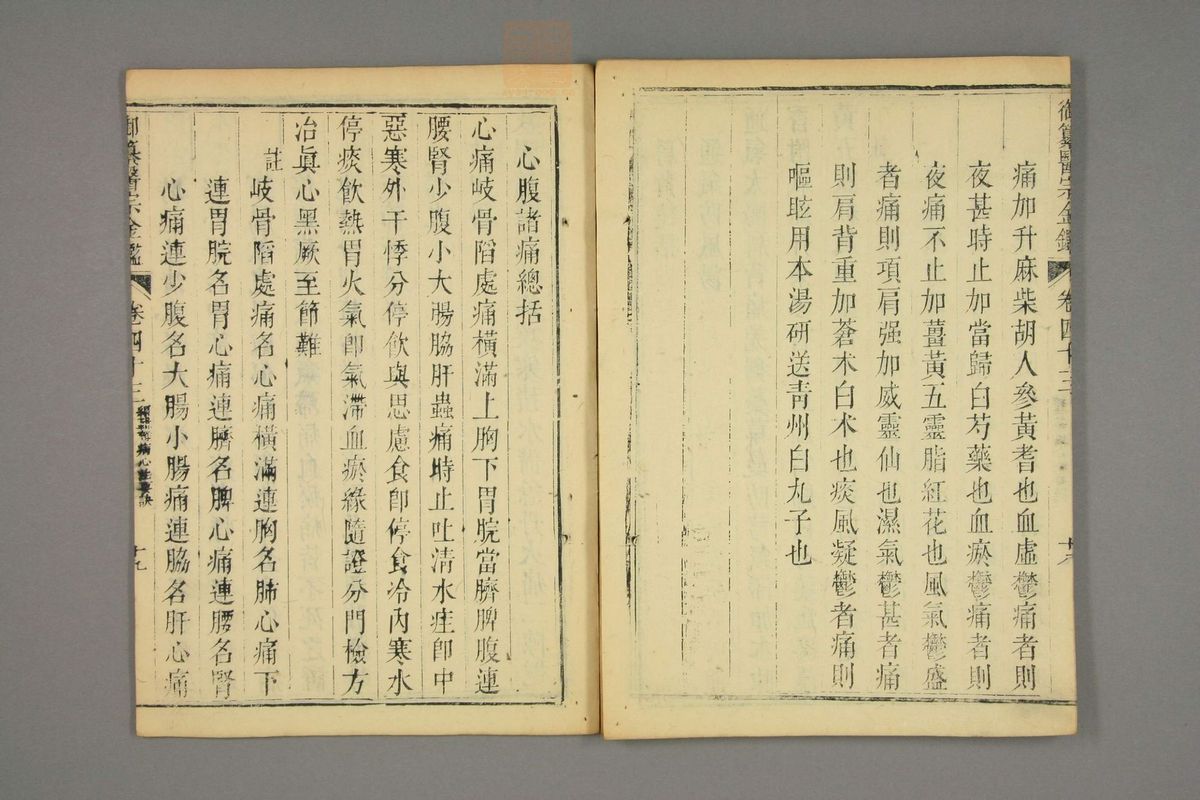 御纂醫宗金鑑 卷四十三
痛加升麻柴胡人參黃耆也血虛鬱痛者則
夜甚時止加當歸白芍藥也血瘀鬱痛者則
夜痛不止加薑黃五靈脂紅花也風氣鬱盛
者痛則項肩强加威靈仙也濕氣鬱甚者痛
則肩背重加蒼朮白朮也痰風凝鬱者痛則
嘔眩用本湯研送青州白丸子也
心腹諸痛總括
心痛岐骨䧟處痛橫滿上胸下胃脘當臍脾腹連
腰腎少腹小大腸脇肝蟲痛時止吐清水疰卽中
惡寒外干悸分停飲與思慮食卽停食冷內寒水
停痰飲熱胃火氣卽氣滯血瘀緣隨證分門檢方
治眞心黑厥至節難
註
岐骨䧟處痛名心痛橫滿連胸名肺心痛下
連胃脘名胃心痛連臍名脾心痛連腰名腎
心痛連少腹名大腸小腸痛連脇名肝心痛
御纂醫宗金鑑 卷四十三 十九